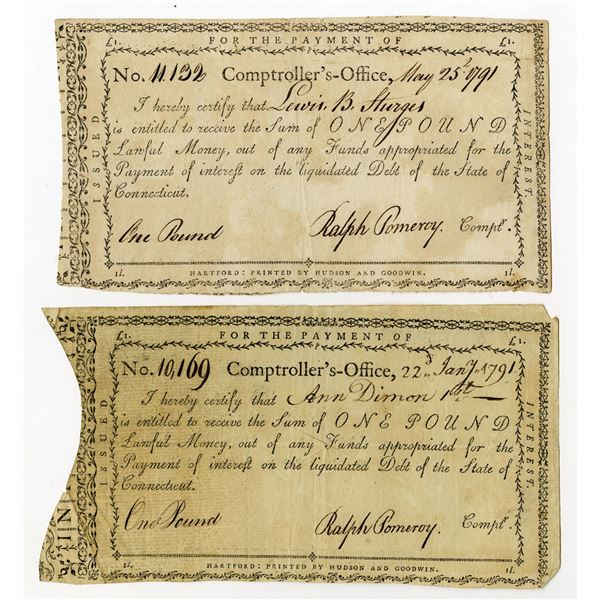 FOR THE PAYMENT OF
£1. £1.
No. 11132 Comptroller's-Office, May 25th 1791
I hereby certify that Lewis B. Sturges
is entitled to receive the Sum of ONE POUND
Lawful Money, out of any Funds appropriated for the
Payment of interest on the liquidated Debt of the State of
Connecticut.
One Pound Ralph Pomeroy. Comptr.
ISSUED
INTEREST.
1l. 1l.
HARTFORD: PRINTED BY HUDSON AND GOODWIN.
FOR THE PAYMENT OF
£1. £1.
No. 10,169 Comptroller's-Office, 22d Jany. 1791
I hereby certify that Ann Dimon 1st
is entitled to receive the Sum of ONE POUND
Lawful Money, out of any Funds appropriated for the
Payment of interest on the liquidated Debt of the State of
Connecticut.
One Pound Ralph Pomeroy. Comptr.
ISSUED
INTEREST.
1l. 1l.
HARTFORD: PRINTED BY HUDSON AND GOODWIN.